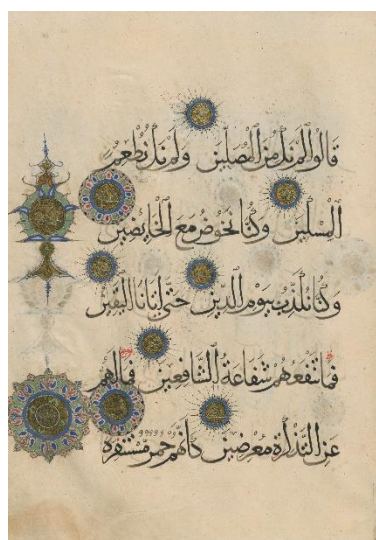 قَالُوا لَمْ نَكُ مِنَ الْمُصَلِّينَ وَلَمْ نَكُ نُطْعِمُ
الْمِسْكِينَ وَكُنَّا نَخُوضُ مَعَ الْخَايِضِينَ
وَكُنَّا نُكَذِّبُ بِيَوْمِ الدِّينِ حَتَّى أَتَانَا الْيَقِينُ
فَمَا تَنْفَعُهُمْ شَفَاعَةُ الشَّافِعِينَ فَمَا لَهُمْ
عَنِ التَّذْكِرَةِ مُعْرِضِينَ كَأَنَّهُمْ حُمُرٌ مُسْتَنْفِرَةٌ